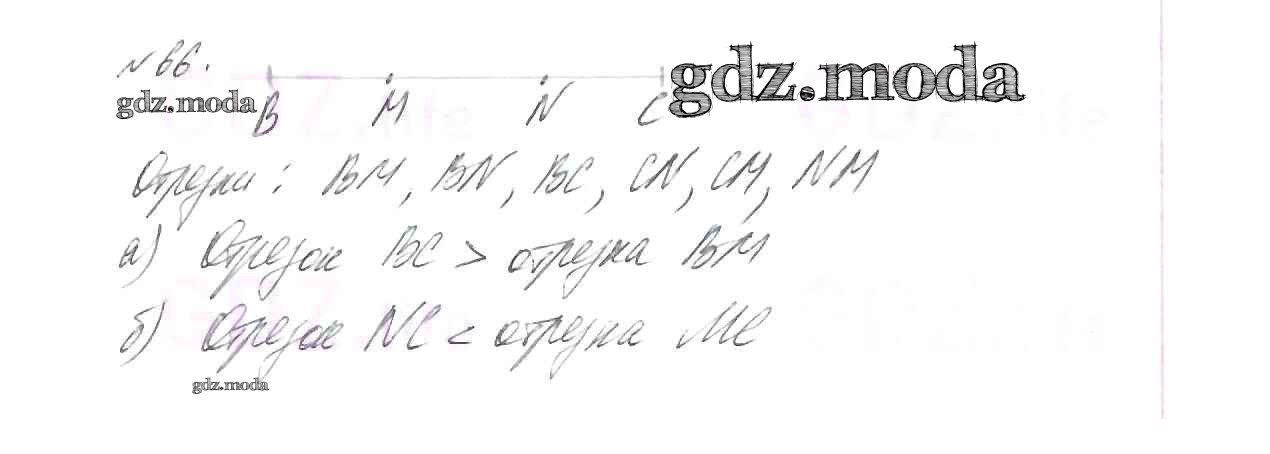 №66.
gdz.moda
gdz.moda
B M N C
Отрезки: BM, BN, BC, CN, CM, NM
а) Отрезок BC > отрезка BM
б) Отрезок NC < отрезка MC
gdz.moda